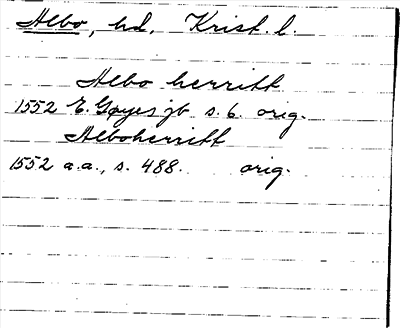 Albo, hd, Krist. l.
Albo herritt
1552 E. Gøyes jb s. 6. orig.
Alboherritt
1552 a.a., s. 488. orig.